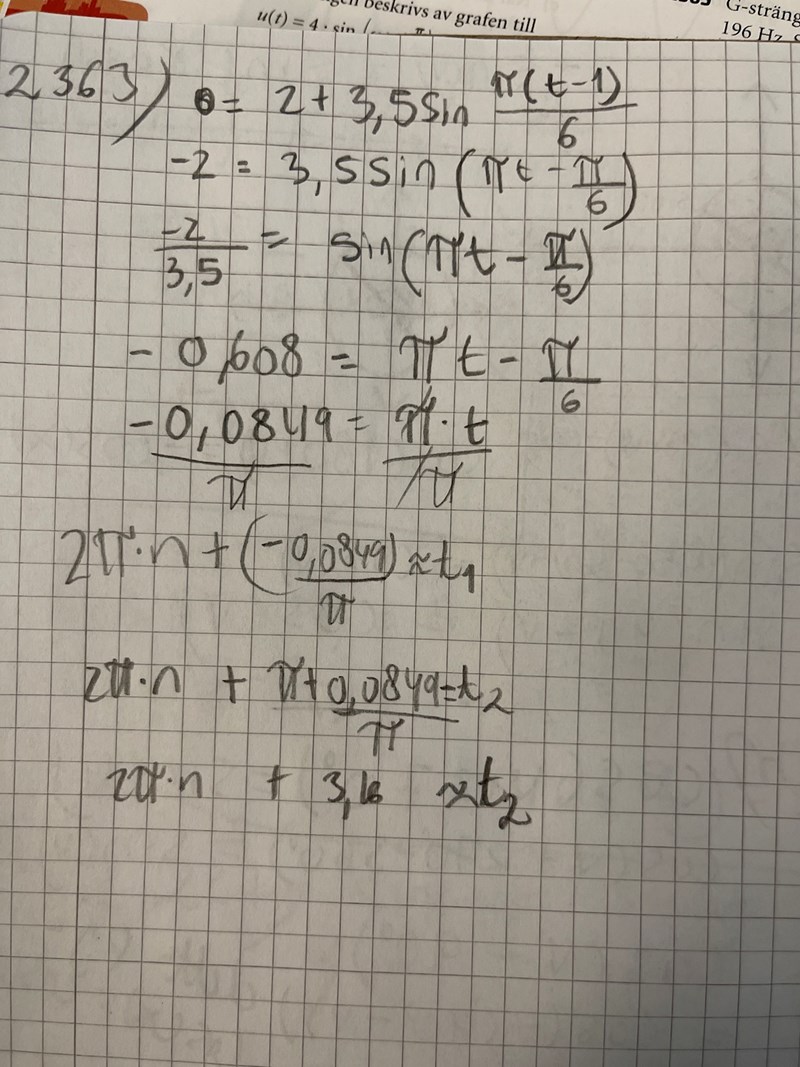 beskrivs av grafen till
u(t) = 4 · sin (
G-sträng
196 Hz
2363) 0 = 2 + 3,5 sin π(t-1)/6
-2 = 3,5 sin (πt - π/6)
-2/3,5 = sin (πt - π/6)
- 0,608 = πt - π/6
-0,0849/π = π·t/π
2π·n + (-0,0849)/π ≈ t₁
2π·n + π+0,0849/π = t₂
2π·n + 3,16 ≈ t₂